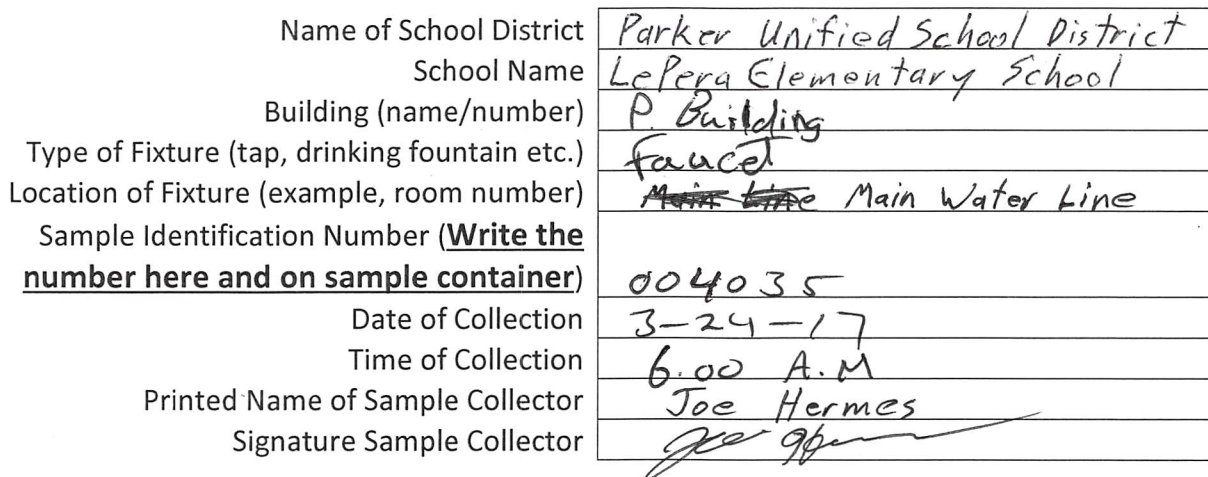 Name of School District Parker Unified School District
School Name LePera Elementary School
Building (name/number) P. Building
Type of Fixture (tap, drinking fountain etc.) faucet
Location of Fixture (example, room number) Main Line Main Water Line
Sample Identification Number (Write the
number here and on sample container) 004035
Date of Collection 3-24-17
Time of Collection 6.00 A.M
Printed Name of Sample Collector Joe Hermes
Signature Sample Collector